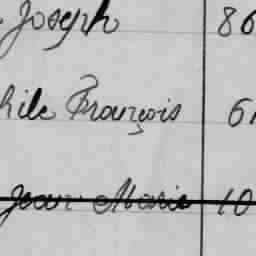 Joseph 86
hile François 6
Jean Marie 10